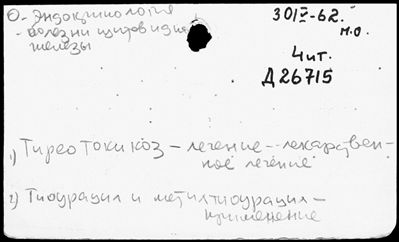 О - Эндокринология
- болезни щитовидн.
железы
30/V-62.
м.о.
Чит.
Д 26715
1) Тиреотоксикоз - лечение - лекарствен-
ное лечение
2) Тиоурацил и метилтиоурацил -
применение